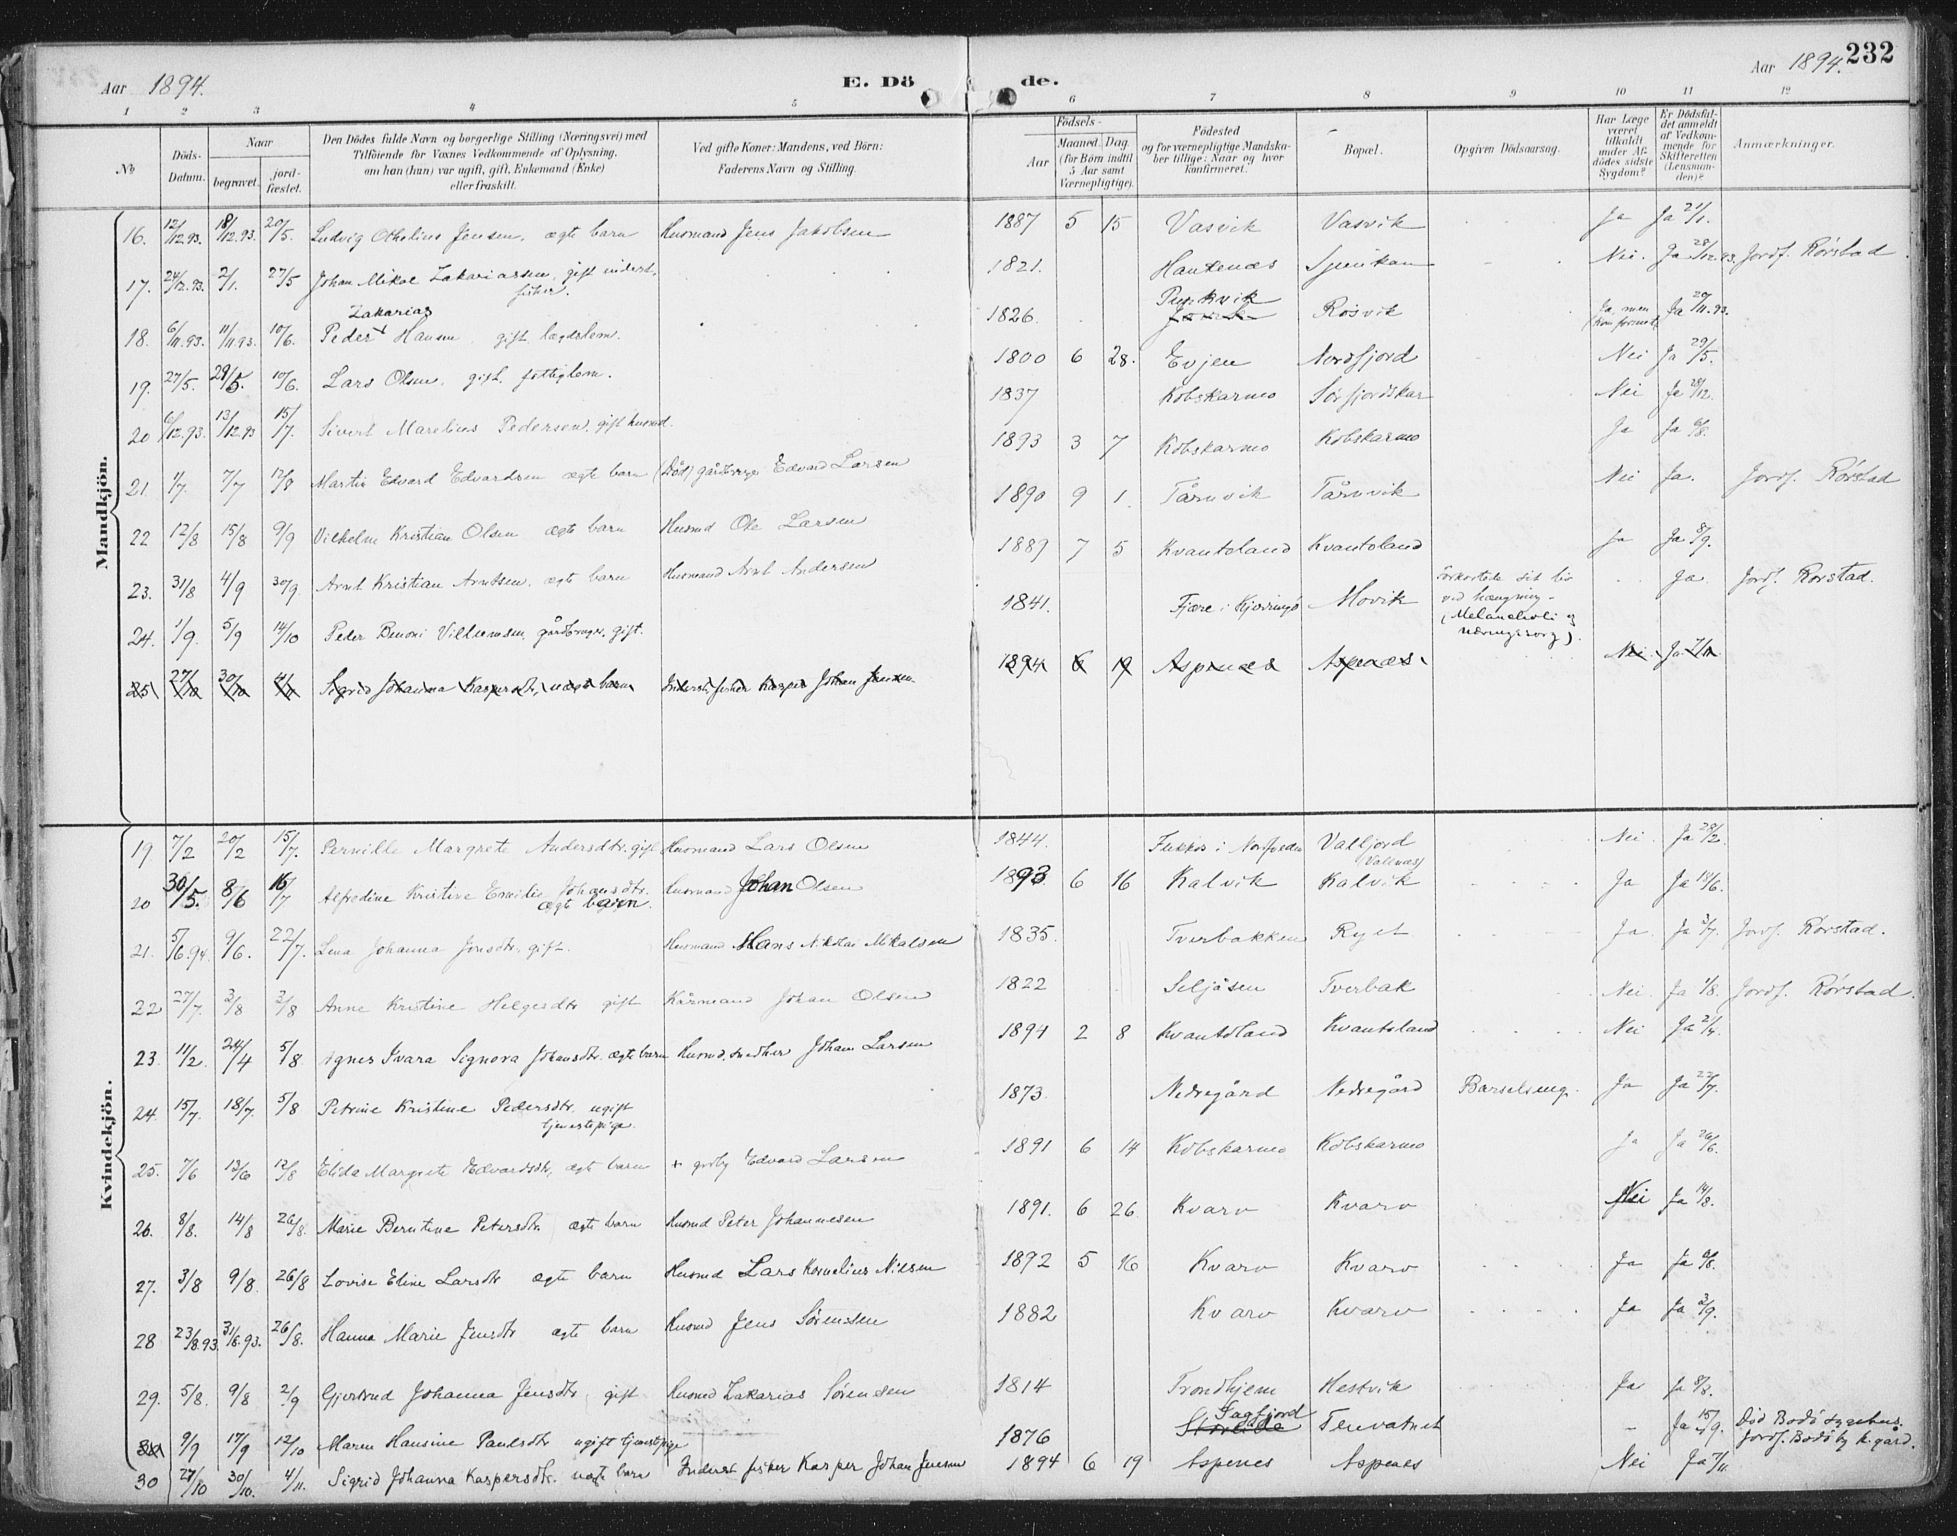 Aar 1894. E. Dö de. Aar 1894. 232
1 2 3 4 5 6 7 8 9 10 11 12
No
Döds-Datum.
Naar
begravet.
jord-fæstet.
Den Dödes fulde Navn og borgerlige Stilling (Næringsvei) med
Tilföiende for Voxnes Vedkommende af Oplysning.
om han (hun) var ugift, gift, Enkemand (Enke)
eller fraskilt.
Ved gifte Koner: Mandens, ved Börn:
Faderens Navn og Stilling.
Födsels-
Aar
Maaned. Dag.
(for Börn indtil
5 Aar samt
Værnepligtige).
Födested
og for værnepligtige Mandska-
ber tillige: Naar og hvor
konfirmeret.
Bopæl.
Opgiven Dödsaarsag.
Har Læge
været
tilkaldt
under Af-
dödes sidste
Sygdom?
Er Dödsfal-
det anmeldt
af Vedkom-
mende for
Skifteretten
(Lensman-
den)?
Anmærkninger.
Mandkjön.
16. 12/12.93. 18/12.93. 20/5. Ludvig Othelius Jensen, ægte barn Husmand Jens Jakobsen 1887 5 15 Vasvik Vasvik Ja Ja 21/1.
17. 24/12.93. 2/1. 27/5 Johan Mikal Zakariassen, gift inderst, fisker. 1821. Haukenæs Ja 28/12.93. Nei. Jordf. Rørstad
18. 6/11.93. 11/11.93. 10/6. Peder Zakarias Hansen, gift, lægdslem. 1826. Rosvik Ja, men Ja 20/11.93.
19. 27/5. 29/5. 10/6. Lars Olsen, gift, fattiglem. 1800 6 28. Evjen Nordfjord Nei Ja 29/5.
20 6/12.93. 13/12.93 15/7. Sivert Marelius Pedersen, gift husmd. 1837 Kobskarmo Sørfjordskar Nei Ja 28/12.
21. 1/7. 7/7 12/8 Martin Edvard Edvardsen ægte barn (Død) gårdbruger Edvard Larsen 1893 3 7 Kobskarmo Kobskarmo Ja Ja 6/8.
22 12/8 15/8 9/9 Vilhelm Kristian Olsen ægte barn Husmd Ole Larsen 1890 9 1. Tårnvik Tårnvik Nei Ja. Jordf. Rørstad
23. 31/8 4/9 30/9 Arnt Kristian Arntsen, ægte barn Husmand Arnt Andersen 1889 7 5 Kvantoland Kvantoland Ja Ja 8/9.
24. 1/9. 5/9 14/10 Peder Benoni Villumsen, gårdbruger, gift. 1841. Fjære i Kjerringø Movik forkortede sit liv
ved hængning -
(Melancholi og
næringssorg). Ja. Jordf. Rørstad.
25 27/10 30/10 4/11 Sigrid Johanna Kaspersdtr, uægte barn Inderst, fisker Kasper Johan Jensen 1894 6 19 Aspenæs Aspenæs Nei Ja 7/11
Kvindekjön.
19 7/2 20/2 15/7. Pernille Margrete Andersdtr. gift Husmand Lars Olsen 1844. Valljord
(Vallnæs) Nei. Ja 28/2.
20 30/5. 8/6 15/7 Alfredine Kristine Emilie Johansdtr. ægte barn. Husmand Johan Olsen 1893 6 16 Kalvik Kalvik Ja Ja 14/6.
21. 5/6.94. 9/6. 22/7. Lina Johanna Jonsdtr. gift. Husmand Hans Nikolai Mikalsen 1835. Tverbakken Ryet Ja. Ja 3/7. Jordf. Rørstad.
22 27/7. 3/8 3/8 Anne Kristine Helgesdtr gift Kårmand Johan Olsen 1822 Seljåsen Tverbak Nei. Ja 1/8. Jordf. Rørstad.
23. 11/2. 24/4 5/8 Agnes Ivara Signora Johansdtr. ægte barn Husmd. snedker Johan Larsen 1894 2 8 Kvantoland Kvantoland Nei Ja 21/4.
24. 15/7. 18/7. 5/8 Petrine Kristine Pedersdtr. ugift
tjenestepige. 1873. Nedregård Nedregård Barselseng. Ja Ja 22/7.
25. 7/6 13/6 12/8 Elida Margrete Edvardsdtr. ægte barn + Edvard Larsen 1891 6 14 Kobskarmo Kobskarmo Ja Ja 26/6.
26. 8/8. 14/8 26/8. Marie Berntine Petersdtr. ægte barn Husmd Peter Johannesen 1891. 6 26 Kvarv Kvarv Nei Ja 14/8.
27. 3/8 9/8. 26/8 Lovise Eline Larsdtr ægte barn Husmd Lars Kornelius Nilsen 1892 5 16 Kvarv Kvarv Ja Ja 9/8.
28 23/8.93. 31/8.93. 26/8. Hanna Marie Jensdtr ægte barn Husmd Jens Sörenssen 1882 Kvarv Kvarv Ja Ja 3/9.
29. 5/8. 9/8 2/9 Gjertrud Johanna Jensdtr, gift Husmd Zakarias Sörensen 1814 Trondhjem Hestvik Ja Ja 8/8.
9/9 17/9 12/10 Maren Hansine Paulsdtr ugift tjenestepige 1876 Fagfjord Tenvatnet - Ja 15/9. Död Bodö sygehus.
Jordf. Bodö by k. gård.
30 27/10 30/10. 4/11. Sigrid Johanna Kaspersdtr. uægte barn Inderst fisker Kasper Johan Jensen 1894 6 19 Aspenes Aspenes Nei Ja 7/11